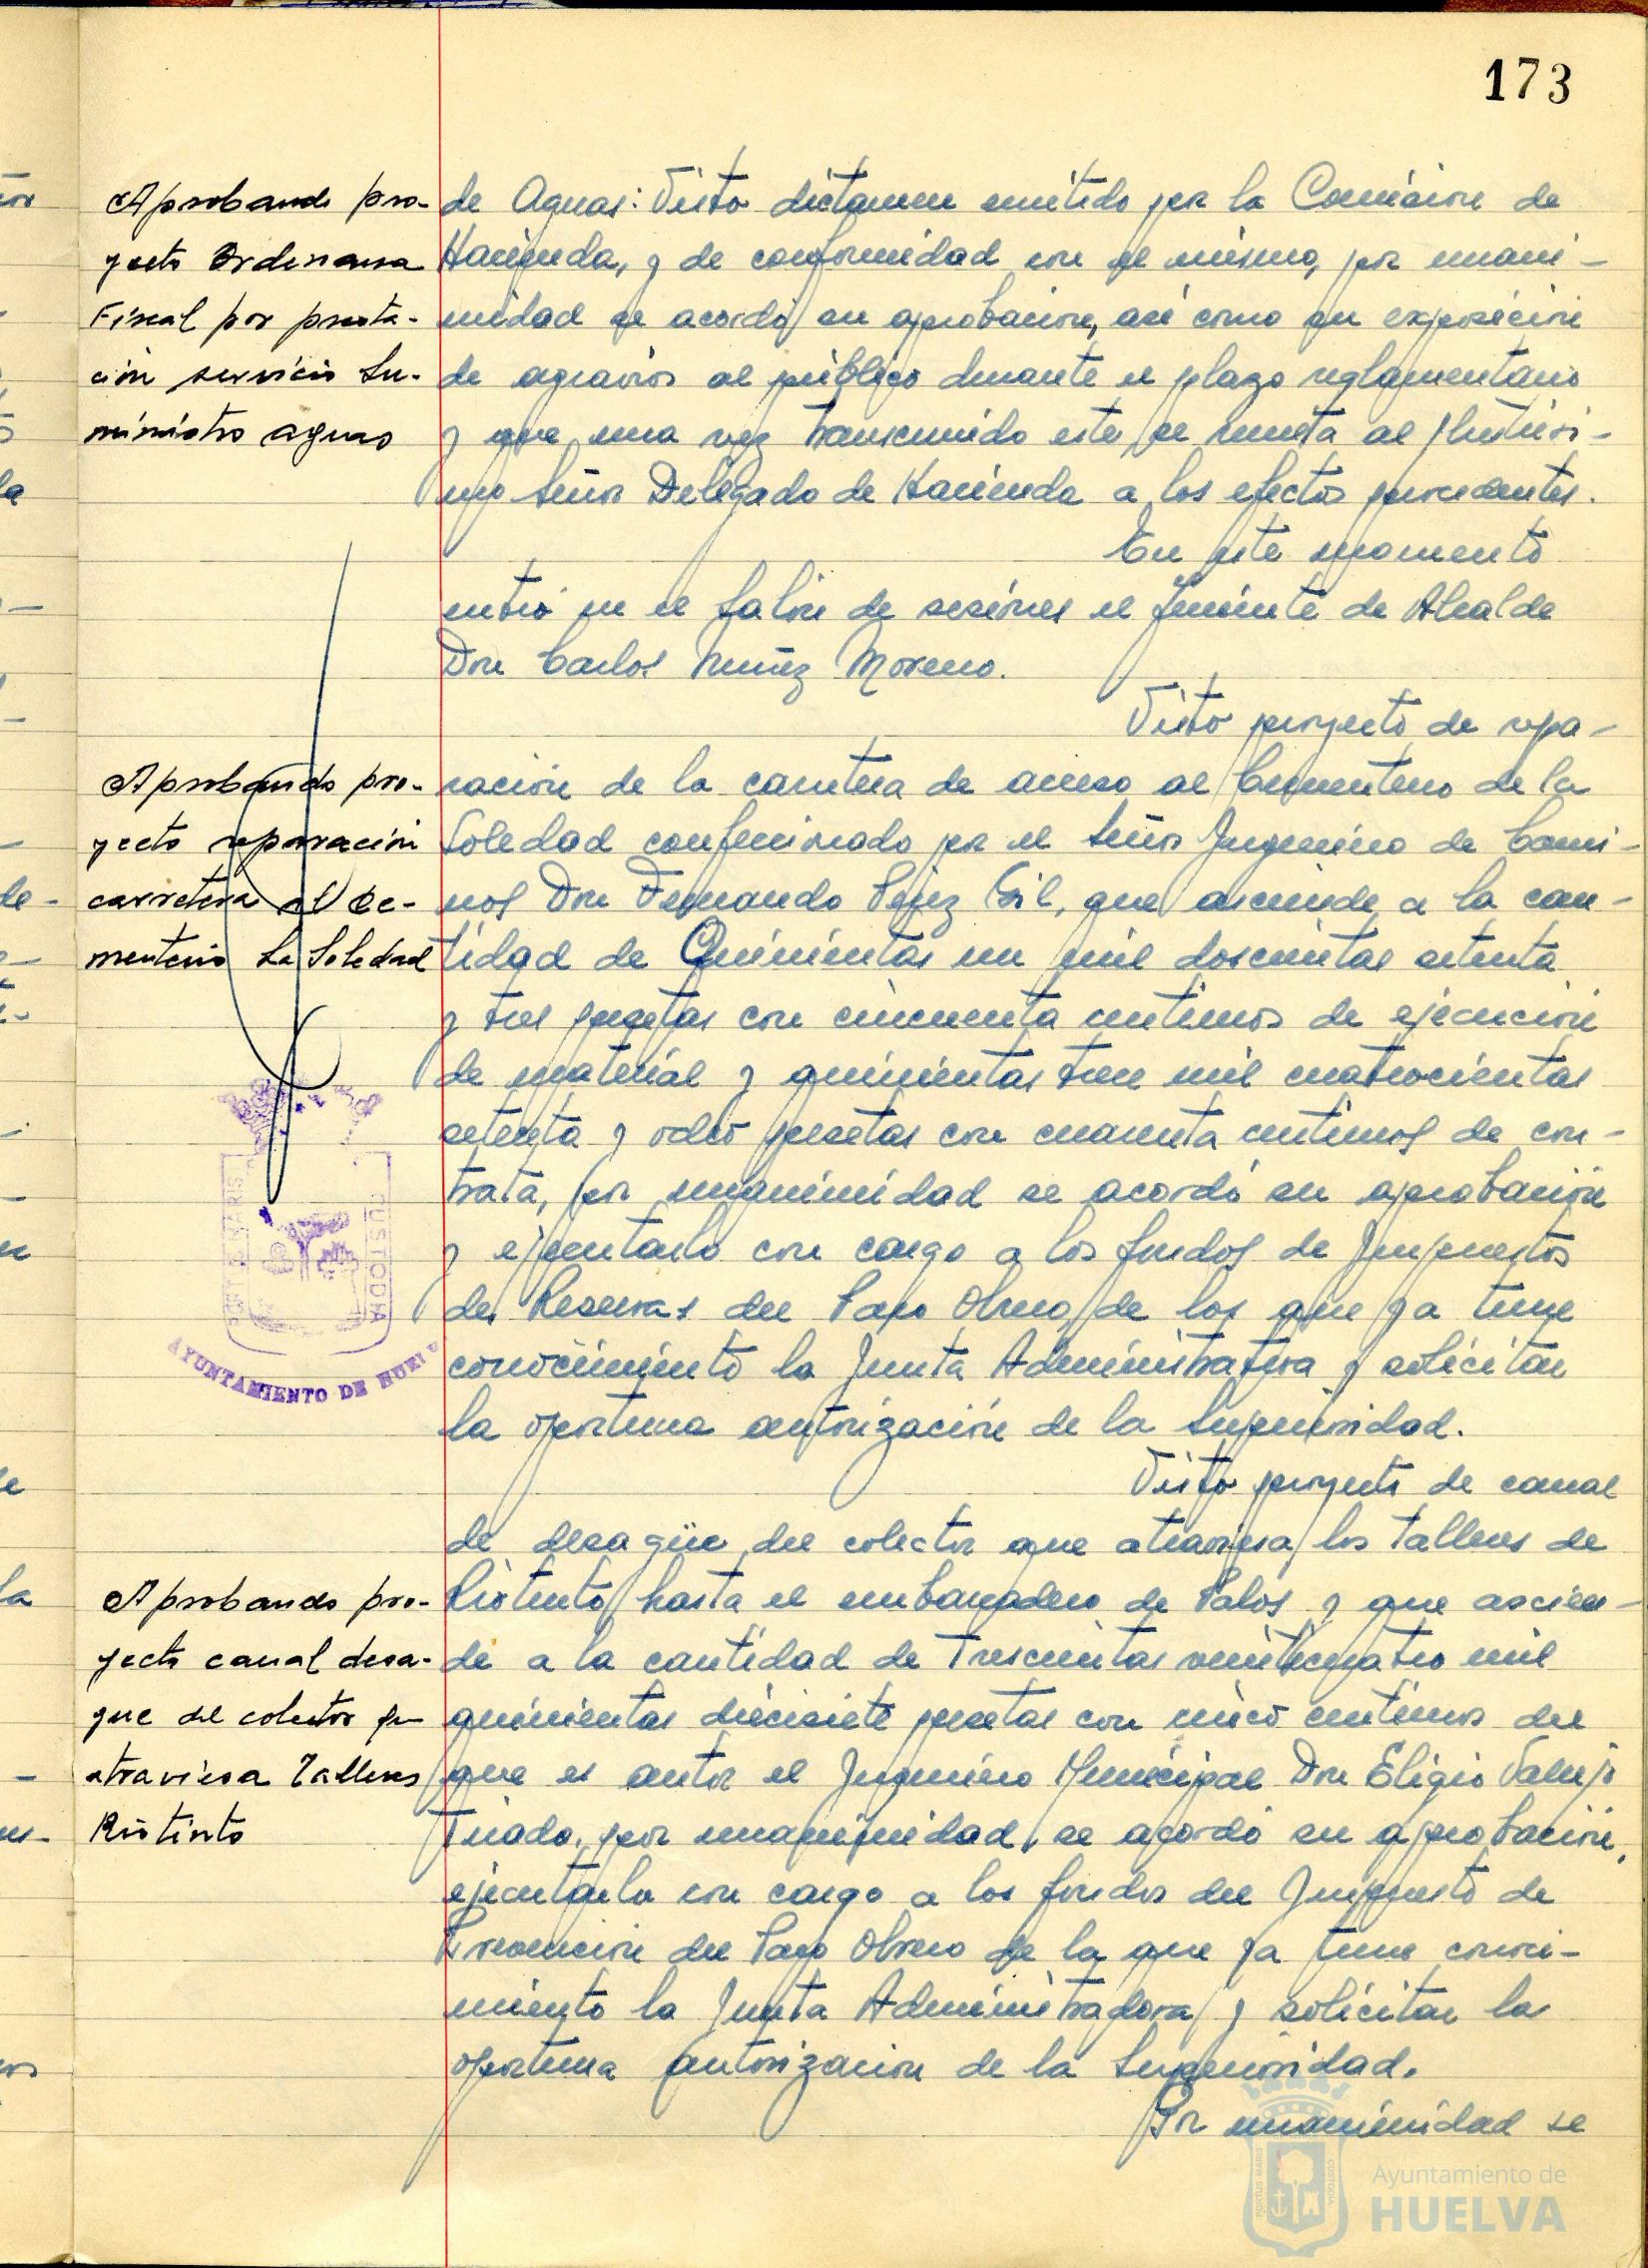 173
Aprobando pro-
yecto Ordenanza
Fiscal por presta-
ción servicio Su-
ministro aguas
de Aguas: Visto dictamen emitido por la Comisión de
Hacienda, y de conformidad con el mismo, por unani-
midad se acordó su aprobación, así como su exposición
de agravios al público durante el plazo reglamentario
y que una vez transcurrido este, se remita al Ilustrísi-
mo Señor Delegado de Hacienda a los efectos procedentes.
En este momento
entró en el Salón de sesiones el Teniente de Alcalde
Don Carlos Nuñez Moreno.
Visto proyecto de repa-
Aprobando pro-
yecto reparación
carretera al Ce-
menterio La Soledad
ración de la carretera de acceso al Cementerio de la
Soledad confeccionado por el Señor Ingeniero de Cami-
nos Don Fernando Pérez Gil, que asciende a la can-
tidad de Quinientas un mil doscientas setenta
y tres pesetas con cincuenta centimos de ejecución
de material y quinientas trece mil cuatrocientas
setenta y ocho pesetas con cuarenta centimos de con-
trata, por unanimidad se acordó su aprobación
y ejecutarlo con cargo a los fondos de Impuestos
de Reservas del Paro Obrero, de los que ya tiene
conocimiento la Junta Administrativa y solicitar
la oportuna autorización de la Superioridad.
PORTUS MARIS
CUSTODIA
AYUNTAMIENTO DE HUELV
Visto proyecto de canal
de desagüe del colector que atraviesa los talleres de
Aprobando pro-
yecto canal desa-
gue del colector que
atraviesa Talleres
Riotinto
Riotinto hasta el embarcadero de Palos y que ascien-
de a la cantidad de Trescientas veinticuatro mil
quinientas diecisiete pesetas con cinco centimos del
que es autor el Ingeniero Municipal Don Eligio Vallejo
Tirado, por unanimidad, se acordó su aprobación,
ejecutarlo con cargo a los fondos del Impuesto de
Prevención del Paro Obrero de la que ya tiene conoci-
miento la Junta Administradora y solicitar la
oportuna autorización de la Superioridad.
Por unanimidad se
Ayuntamiento de
HUELVA